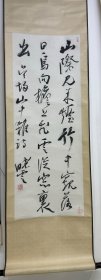 山際見來煙竹中窺落
日鳥向檐上飛雲從窗裏
出 吳均山中雜詩